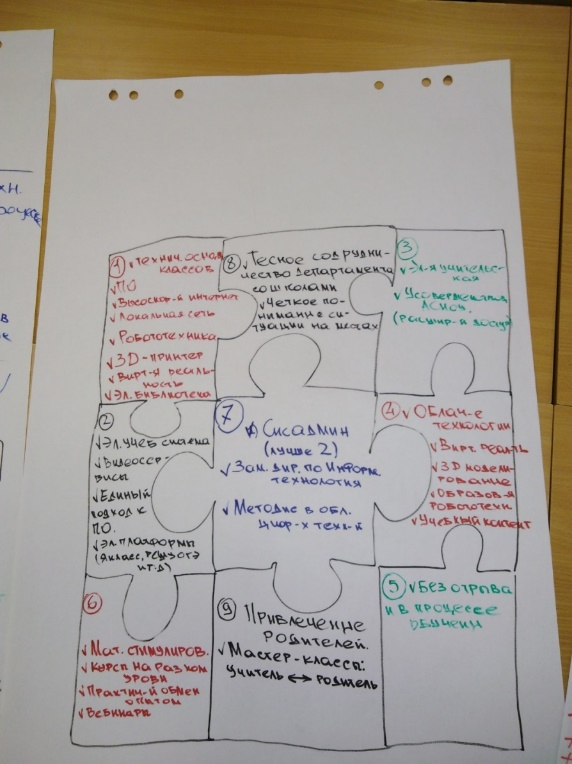 х.Н.
в
1
✓ Технич. оснащ
классов
✓ ПО
✓ Высокос-й интернет
✓ Локальная сеть
✓ Робототехника
✓ 3D-принтер
✓ Вирт-я реаль-
ность
✓ Эл. библиотека
8
✓ Тесное сотрудни-
чество департамента
со школами
✓ Четкое по-
нимание си-
туации на местах
3
✓ Эл-я учительс-
кая
✓ Усовершенствов.
АСИОУ.
2
✓ Эл. учеб система
✓ Видеосер-
висы
✓ Единый
подход к
ПО.
✓ Эл. платформы
(Якласс, РешуОГЭ
и т.д)
7
✓ Сисадмин
(лучше 2)
✓ Зам. дир. по Информ
технология
✓ Методис в обл.
цифр-х техн-й
4
✓ Облач-е
технологии
✓ Вирт. реал-ть
✓ 3D модели-
рование
✓ Образов-я
робототехн
✓ Учебный контент
6
✓ Мат. стимулиров.
✓ Курсы на разном
уровн
✓ Практич-й обмен
опытом
✓ Вебинары
9
Привлечение
родителей.
✓ Мастер-классы:
учитель ↔ родитель
5
✓ Без отрыва
и в процессе
обучени